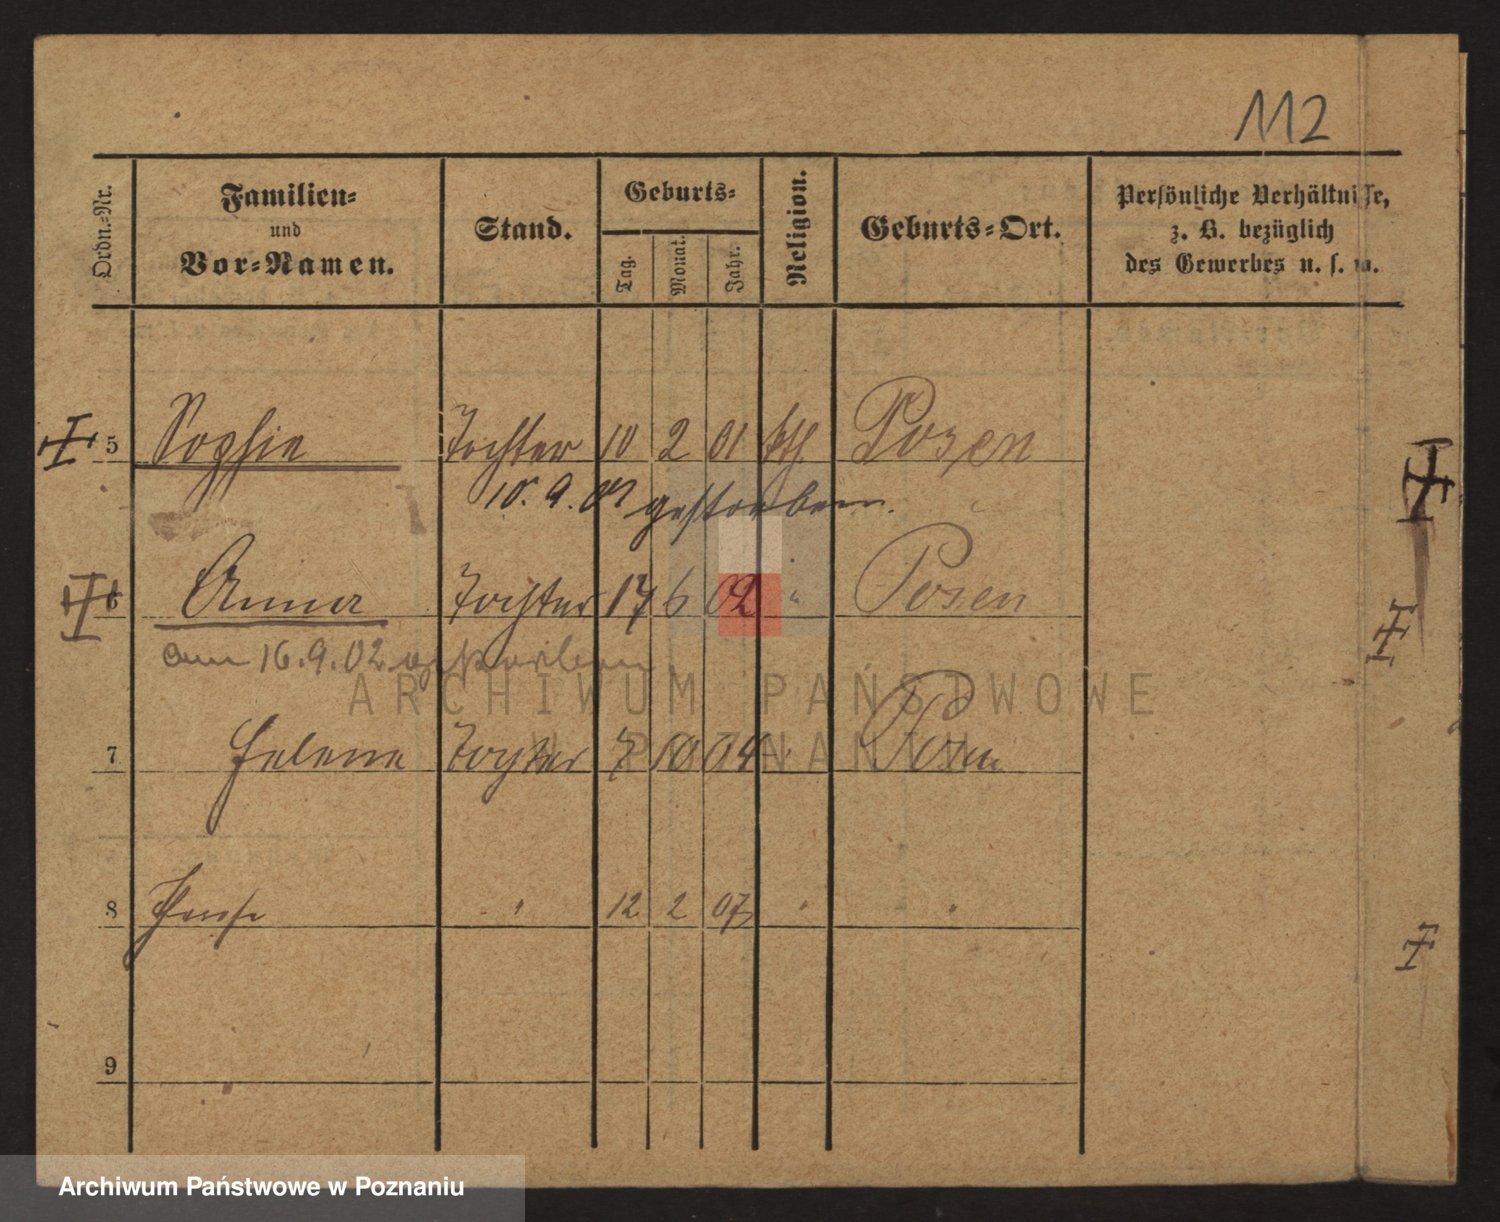 112
Ordn.=Nr.
Familien=
und
Vor=Namen.
Stand.
Geburts=
Tag. Monat. Jahr.
Religion.
Geburts=Ort.
Persönliche Verhältnisse,
z. B. bezüglich
des Gewerbes u. s. w.
5 Sophie Tochter 10 2 01 kth. Posen
10. 9. gestorben.
6 Anna Tochter 17 6 02 " Posen
am 16.9.02 gestorben
ARCHIWUM PAŃSTWOWE
W POZNANIU
7 Helene Tochter 7 10 04 " Posen
8 " 12 2 07 " "
9
Archiwum Państwowe w Poznaniu